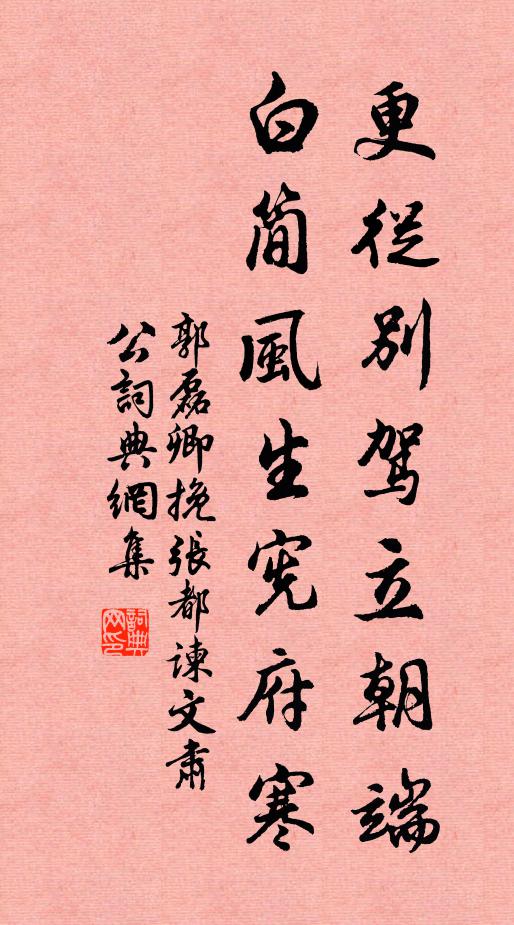 更從別駕立朝端
白簡風生宪府寒
郭磊卿挽張都諫文肅
公詞典網集
詞典網印